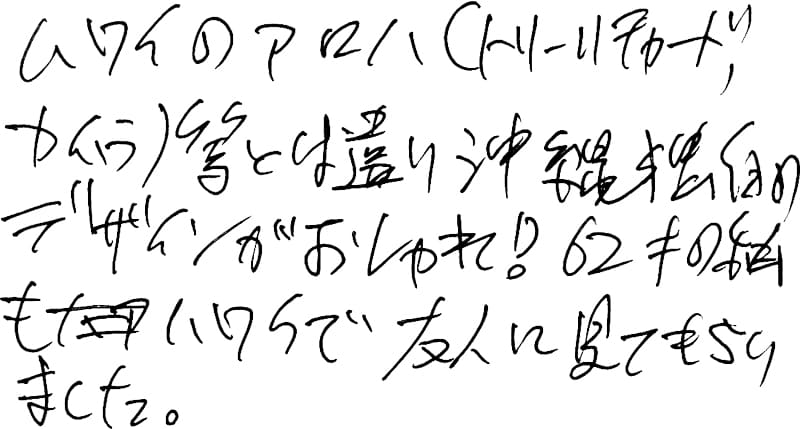 ハワイのアロハ(トリーリチャード,
カハラ)等とは違い沖縄独自の
デザインがおしゃれ!62才の私
もハワイで友人に見てもらい
ました。